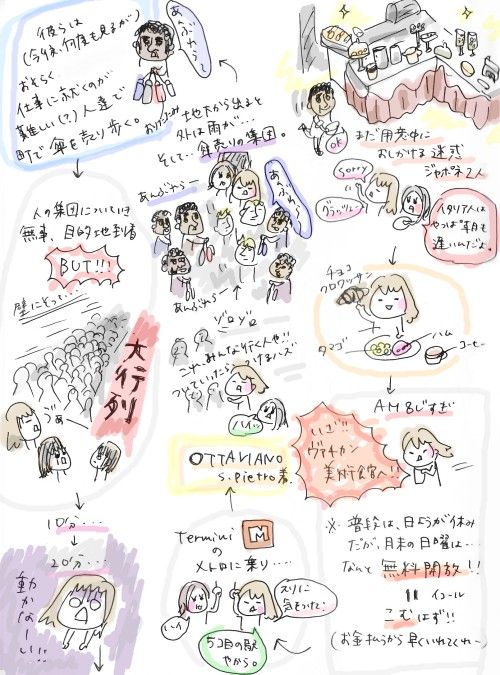 OK
まだ用意中に
おしかける迷惑
ジャポネ2人
Sorry
グラッツェ〜
イタリア人は
チョコ
クロワッサン
タマゴ
ハム
コーヒー
AM8じすぎ
いざ!!
ヴァチカン
美術館へ!!
※ 普段は、日ようが休み
だが、月末の日曜は…
なんと 無料開放!!
イコール
こむはず!!
(お金払うから早くいれてくれ〜)
Termini
の
メトロに乗り…
M
スリに
気をつけて!
ハイ
5コ目の駅
やから。
OTTAVIANO
S.Pietro着。
ゾロゾロ
これみんな行く人や!!
ついていったら
ハイ!
あんぶれら〜
あんぶれら〜
あんぶれら〜
地下から出ると
外は雨が…
そして…傘売りの集団。
あんぶれら〜
彼らは
(今後、何度も見るが)
おそらく
仕事に就くのが
難しい(?)人達で
町で傘を売り歩く。
おりたたみ
人の集団についていき
無事、目的地到着
BUT!!!
壁にそって…
大行列
うぁ
10分…
20分…
動かな〜い!!